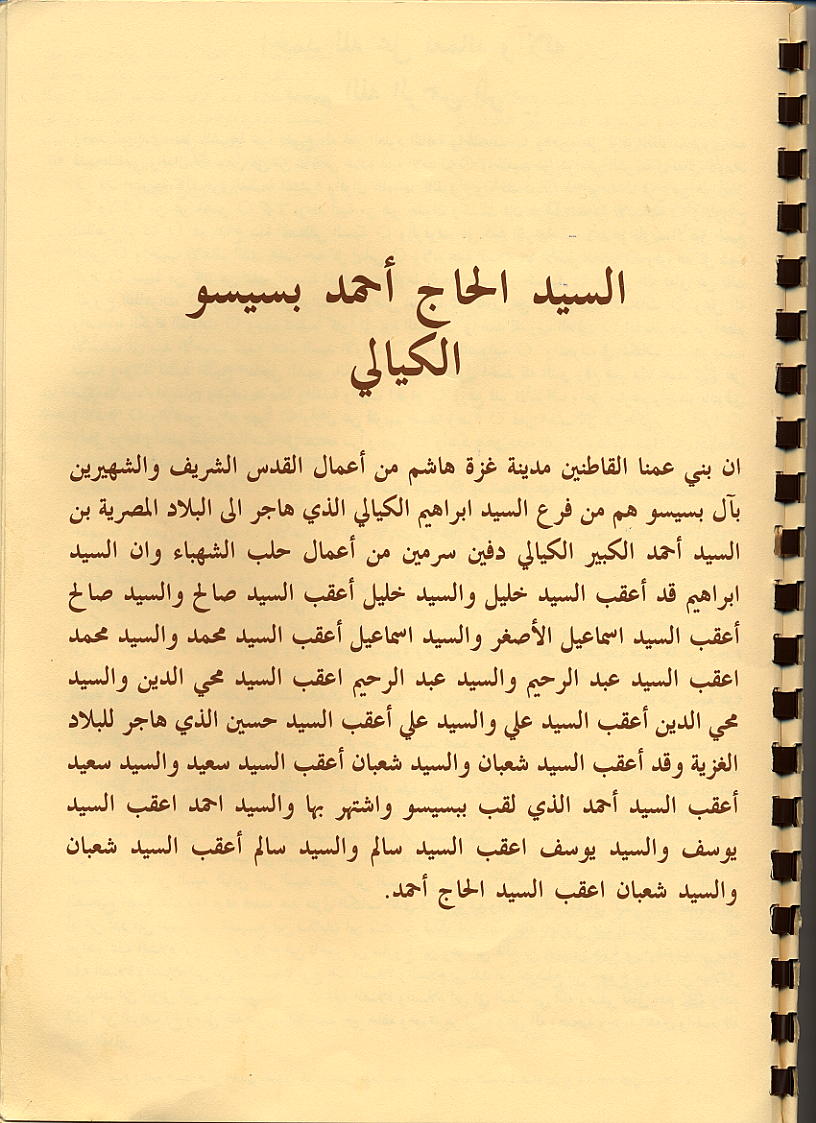 السيد الحاج أحمد بسيسو
الكيالي
ان بني عمنا القاطنين مدينة غزة هاشم من أعمال القدس الشريف والشهيرين
بآل بسيسو هم من فرع السيد ابراهيم الكيالي الذي هاجر الى البلاد المصرية بن
السيد أحمد الكبير الكيالي دفين سرمين من أعمال حلب الشهباء وان السيد
ابراهيم قد أعقب السيد خليل والسيد خليل أعقب السيد صالح والسيد صالح
أعقب السيد اسماعيل الأصغر والسيد اسماعيل أعقب السيد محمد والسيد محمد
اعقب السيد عبد الرحيم والسيد عبد الرحيم اعقب السيد محي الدين والسيد
محي الدين أعقب السيد علي والسيد علي أعقب السيد حسين الذي هاجر للبلاد
الغزية وقد أعقب السيد شعبان والسيد شعبان أعقب السيد سعيد والسيد سعيد
أعقب السيد أحمد الذي لقب ببسيسو واشتهر بها والسيد احمد اعقب السيد
يوسف والسيد يوسف اعقب السيد سالم والسيد سالم أعقب السيد شعبان
والسيد شعبان اعقب السيد الحاج أحمد.